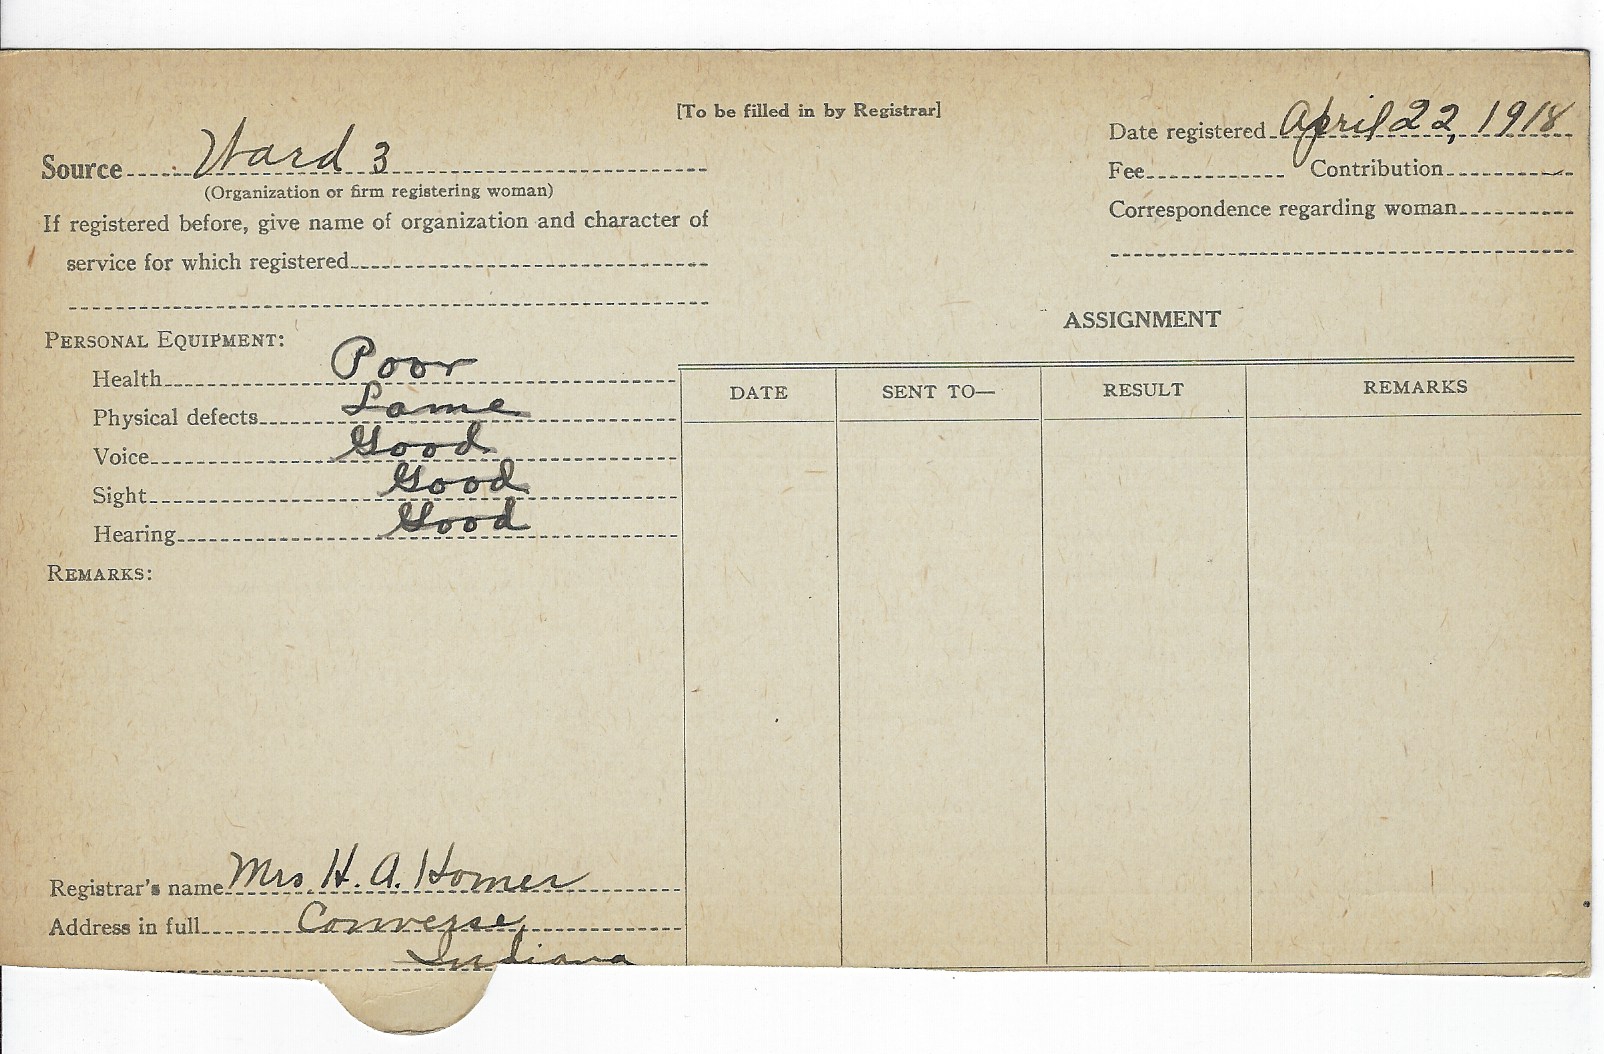 [To be filled in by Registrar]
Source Ward 3
(Organization or firm registering woman)
If registered before, give name of organization and character of
service for which registered
Date registered April 22, 1918
Fee Contribution
Correspondence regarding woman
PERSONAL EQUIPMENT:
Health Poor
Physical defects Lame
Voice Good
Sight Good
Hearing Good
REMARKS:
ASSIGNMENT
DATE SENT TO— RESULT REMARKS
Registrar's name Mrs. H. A. Homer
Address in full Converse,
Indiana